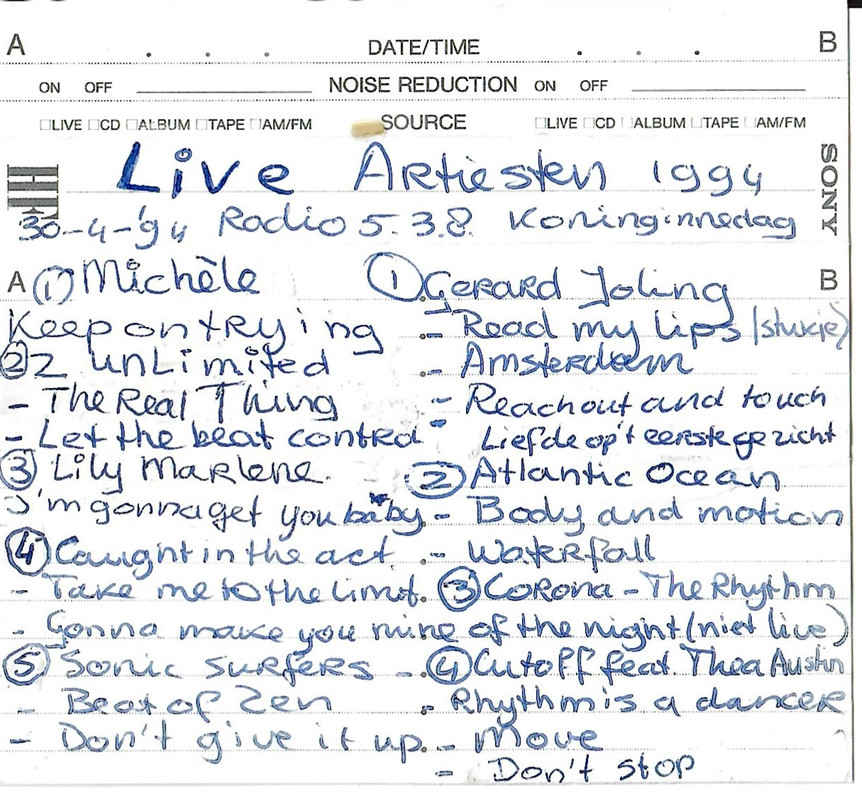 A DATE/TIME B
ON OFF NOISE REDUCTION ON OFF
LIVE CD ALBUM TAPE AM/FM SOURCE LIVE CD ALBUM TAPE AM/FM
HF Live Artiesten 1994 SONY
30-4-'94 Radio 5.3.8. Koninginnedag
A B
① Michèle
Keep on trying
② 2 unLimited
- The Real Thing
- Let the beat control
③ Lily Marlene
I'm gonna get you baby
④ Caught in the act
- Take me to the limit.
- Gonna make you mine
⑤ Sonic surfers
- Beat of Zen
- Don't give it up.
① Gerard Joling
- Read my lips (stukje)
- Amsterdam
- Reach out and touch
Liefde op 't eerste gezicht
② Atlantic Ocean
- Body and motion
- Waterfall
③ Corona - The Rhythm
of the night (niet live)
④ Cutoff feat. Thea Austin
Rhythm is a dancer
- Move
- Don't stop